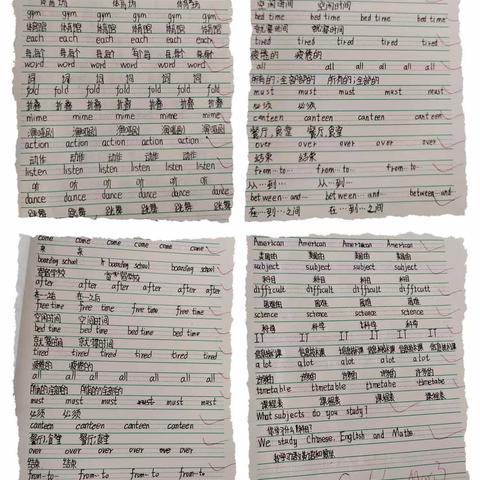 体育场 体育场 体育场
gym gym gym gym gym
体育馆 体育馆 体育馆 体育馆
each each each each each
每个 每个 每个 每个
word word word word word
词 词 词 词
fold fold fold fold fold
折叠 折叠 折叠 折叠 折叠
mime mime mime mime
action action action action
动作 动作 动作 动作
listen listen listen listen listen
听 听 听 听
dance dance dance dance dance
跳舞 跳舞 跳舞 跳舞
空闲时间 空闲时间
bed time bed time bed time bed time
就寝时间 就寝时间
tired tired tired tired tired
疲倦的 疲倦的
all all all all all
所有的;全部的 所有的;全部的
must must must must must
必须 必须
canteen canteen canteen canteen
餐厅,食堂 餐厅,食堂
over over over over over
结束 结束
from...to... from...to... from...to...
从...到... 从...到...
between...and between...and between...and
在...到...之间 在...到...之间
come come come come come
来 来
boarding school boarding school boarding school
寄宿学校
after after after after after
在...之后
free time free time free time free time
空闲时间 空闲时间
bed time bed time bed time bed time
就寝时间 就寝时间
tired tired tired tired tired
疲倦的 疲倦的
all all all all all all
所有的;全部的 所有的;全部的
must must must must must
必须 必须
canteen canteen canteen canteen
餐厅;食堂 餐厅;食堂
over over over over over
结束 结束
from...to from...to... from...to... from...to...
American American American American
美国的 美国的 美国的
subject subject subject subject
科目 科目 科目 科目
difficult difficult difficult difficult
困难的 困难 困难
science science science science
科学 科学 科学
IT IT IT IT
a lot a lot a lot a lot
许多的 许多的 许多的
timetable timetable timetable timetabe
课程表 课程表 课程表
What subjects do you study?
你学习什么科目?
We study Chinese, English and Maths.